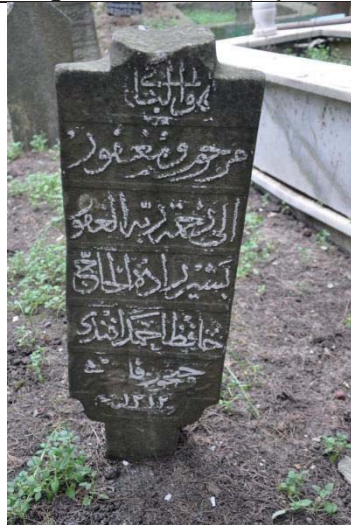 هو الباقي
مرحوم و مغفور
الى رحمة ربه العفو
بشير زاده الحاج
حافظ احمد افندى
روحيچون فاتحه
سنة ١٢١٢